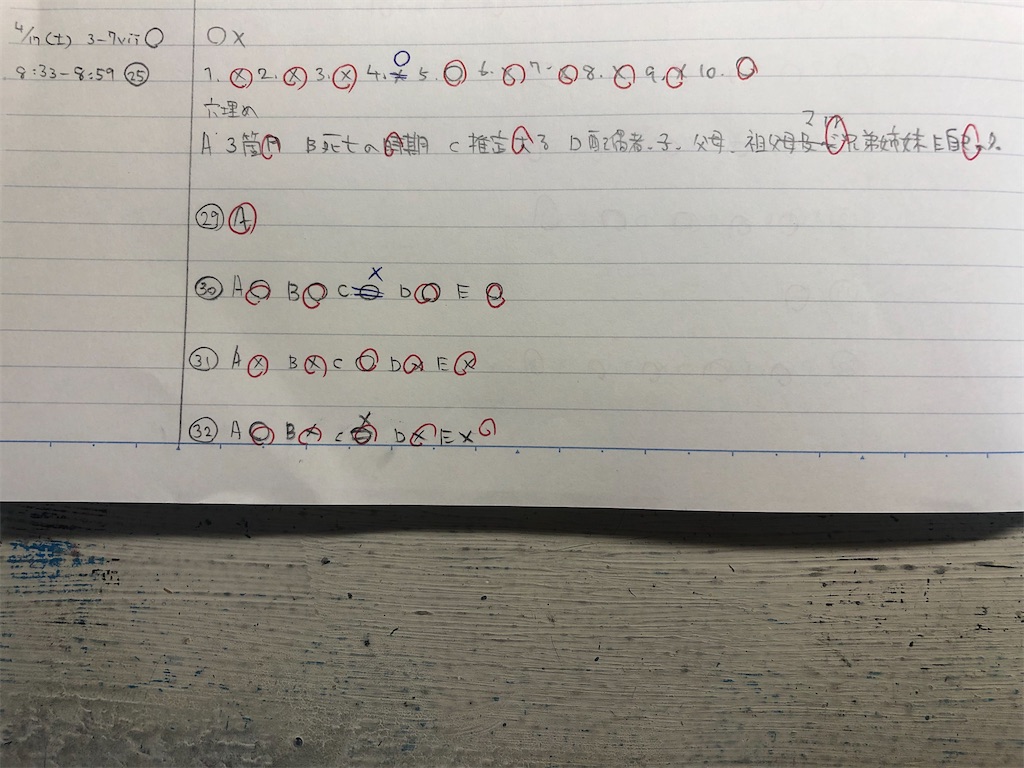 4/17(土) 3-7vii〇
8:33-8:59 ㉕
〇×
1. × 2. × 3. × 4. × 〇 5. 〇 6. × 7. × 8. × 9. × 10. 〇
穴埋め
A 3箇月 B 死亡の時期 C 推定する D 配偶者、子、父母、祖父母及び兄弟姉妹 E 自己の
㉙ A
㉚ A 〇 B 〇 C 〇 × D 〇 E 〇
㉛ A × B × C 〇 D × E ×
㉜ A 〇 B × C 〇 × D × E ×